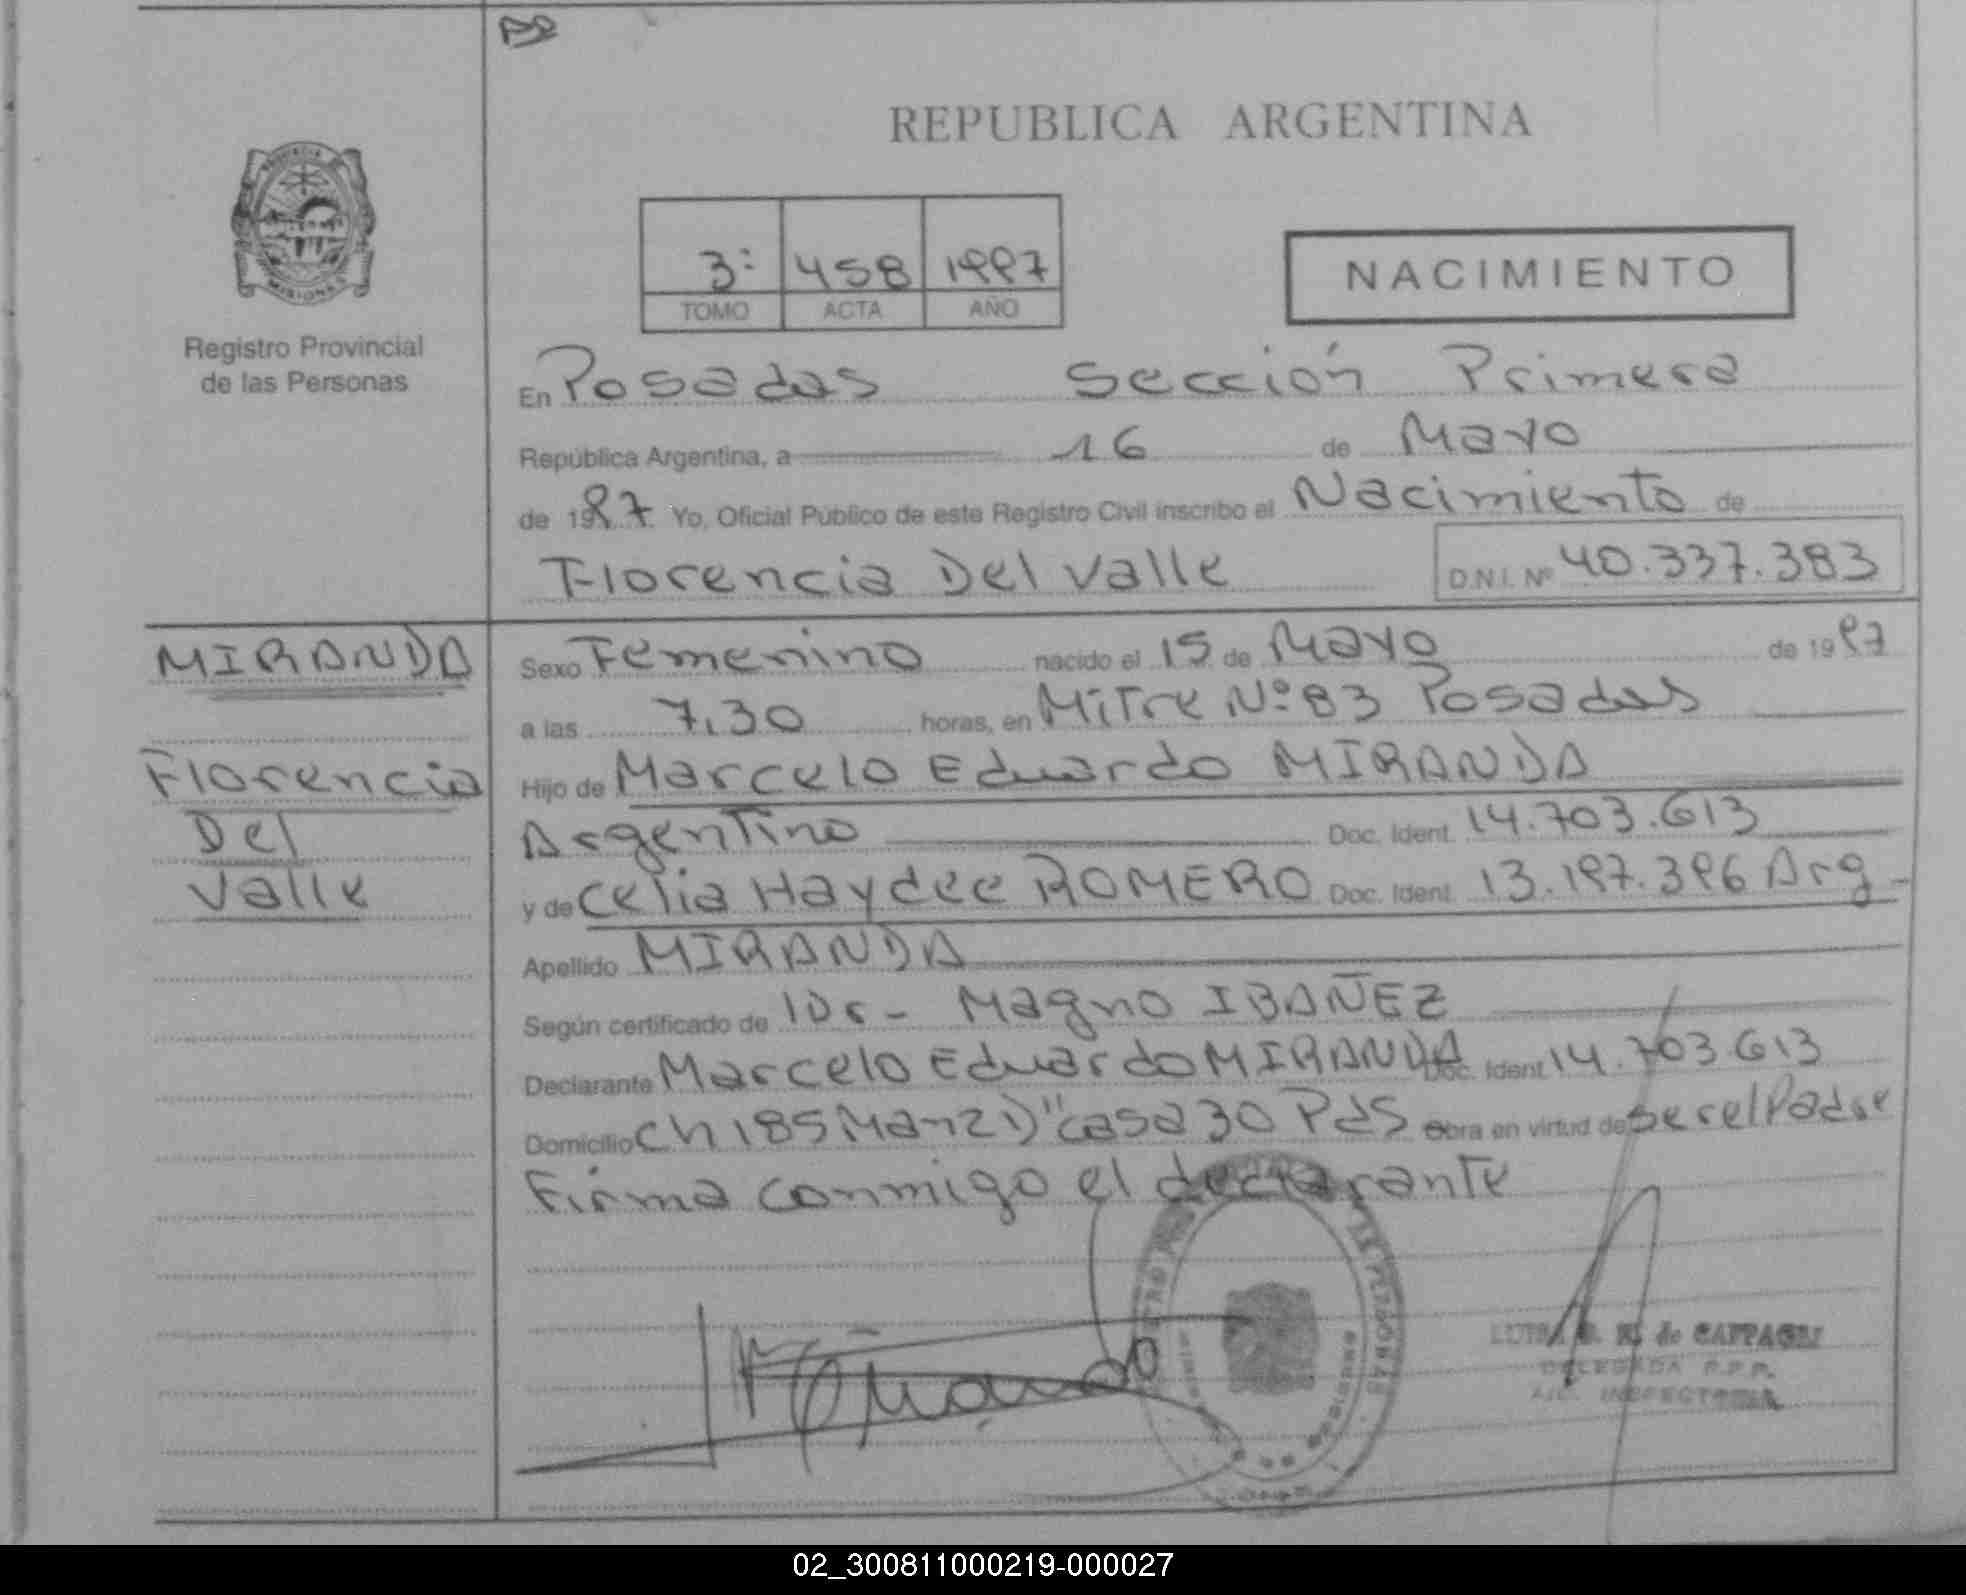 REPUBLICA ARGENTINA
PROVINCIA DE
MISIONES
Registro Provincial
de las Personas
3º 458 1997
TOMO ACTA AÑO
NACIMIENTO
En Posadas Sección Primera
República Argentina, a 16 de Mayo
de 1997. Yo, Oficial Público de este Registro Civil inscribo el Nacimiento de
Florencia Del Valle D.N.I. Nº 40.337.383
MIRANDA
Florencia
Del
Valle
Sexo Femenino nacido el 15 de Mayo de 1997
a las 7,30 horas, en Mitre Nº 83 Posadas
Hijo de Marcelo Eduardo MIRANDA
Argentino Doc. Ident. 14.703.613
y de Celia Haydee ROMERO Doc. Ident. 13.197.396 Arg-
Apellido MIRANDA
Según certificado de Dr- Magno IBAÑEZ
Declarante Marcelo Eduardo MIRANDA Doc. Ident. 14.703.613
Domicilio Ch 185 Manz D" casa 30 Pdas Obra en virtud de ser el Padre
Firma conmigo el declarante
de
DELEGADA R.P.P.
02_300811000219-000027